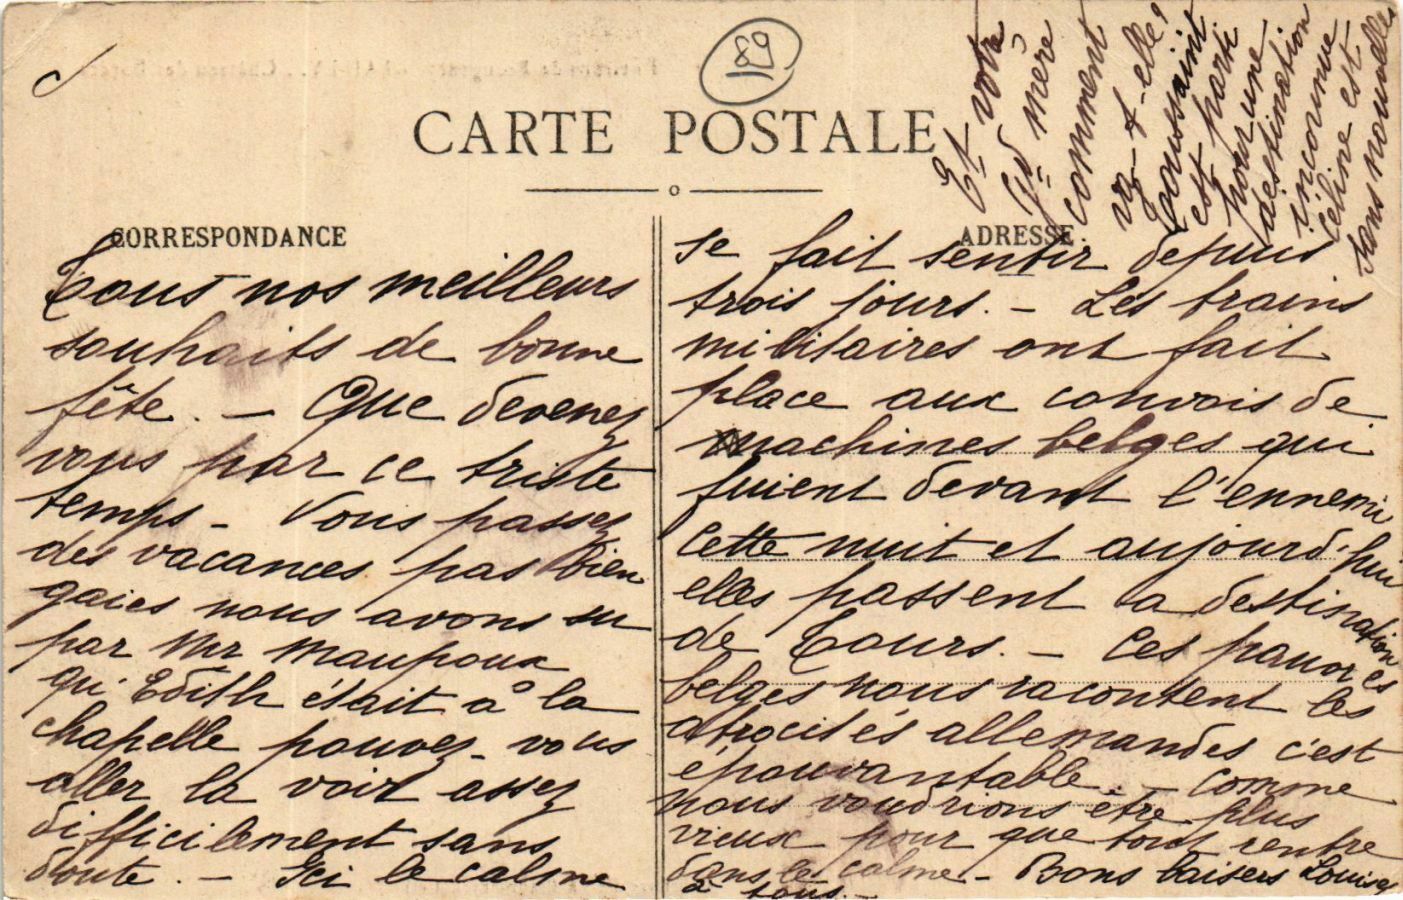 89
CARTE POSTALE
CORRESPONDANCE
ADRESSE.
Tous nos meilleurs
souhaits de bonne
fête. — Que devenez
vous par ce triste
temps — Vous passez
des vacances pas bien
gaies nous avons su
par Mr Maupoux
qu'Edith était à la
chapelle pouvez-vous
aller la voir assez
difficilement sans
doute. — Ici le calme
se fait sentir depuis
trois jours. — Les trains
militaires ont fait
place aux convois de
machines belges qui
fuient devant l'ennemi
cette nuit et aujourd'hui
elles passent a destination
de Tours. — Ces pauvres
belges nous racontent les
atrocités allemandes c'est
épouvantable. — Comme
nous voudrions être plus
vieux pour que tout rentre
dans le calme — Bons baisers Louise
à tous. —
Et votre
Gd mère
comment
va-t-elle?
Toussaint
est parti
pour une
destination
inconnue
Céline est
sans nouvelles